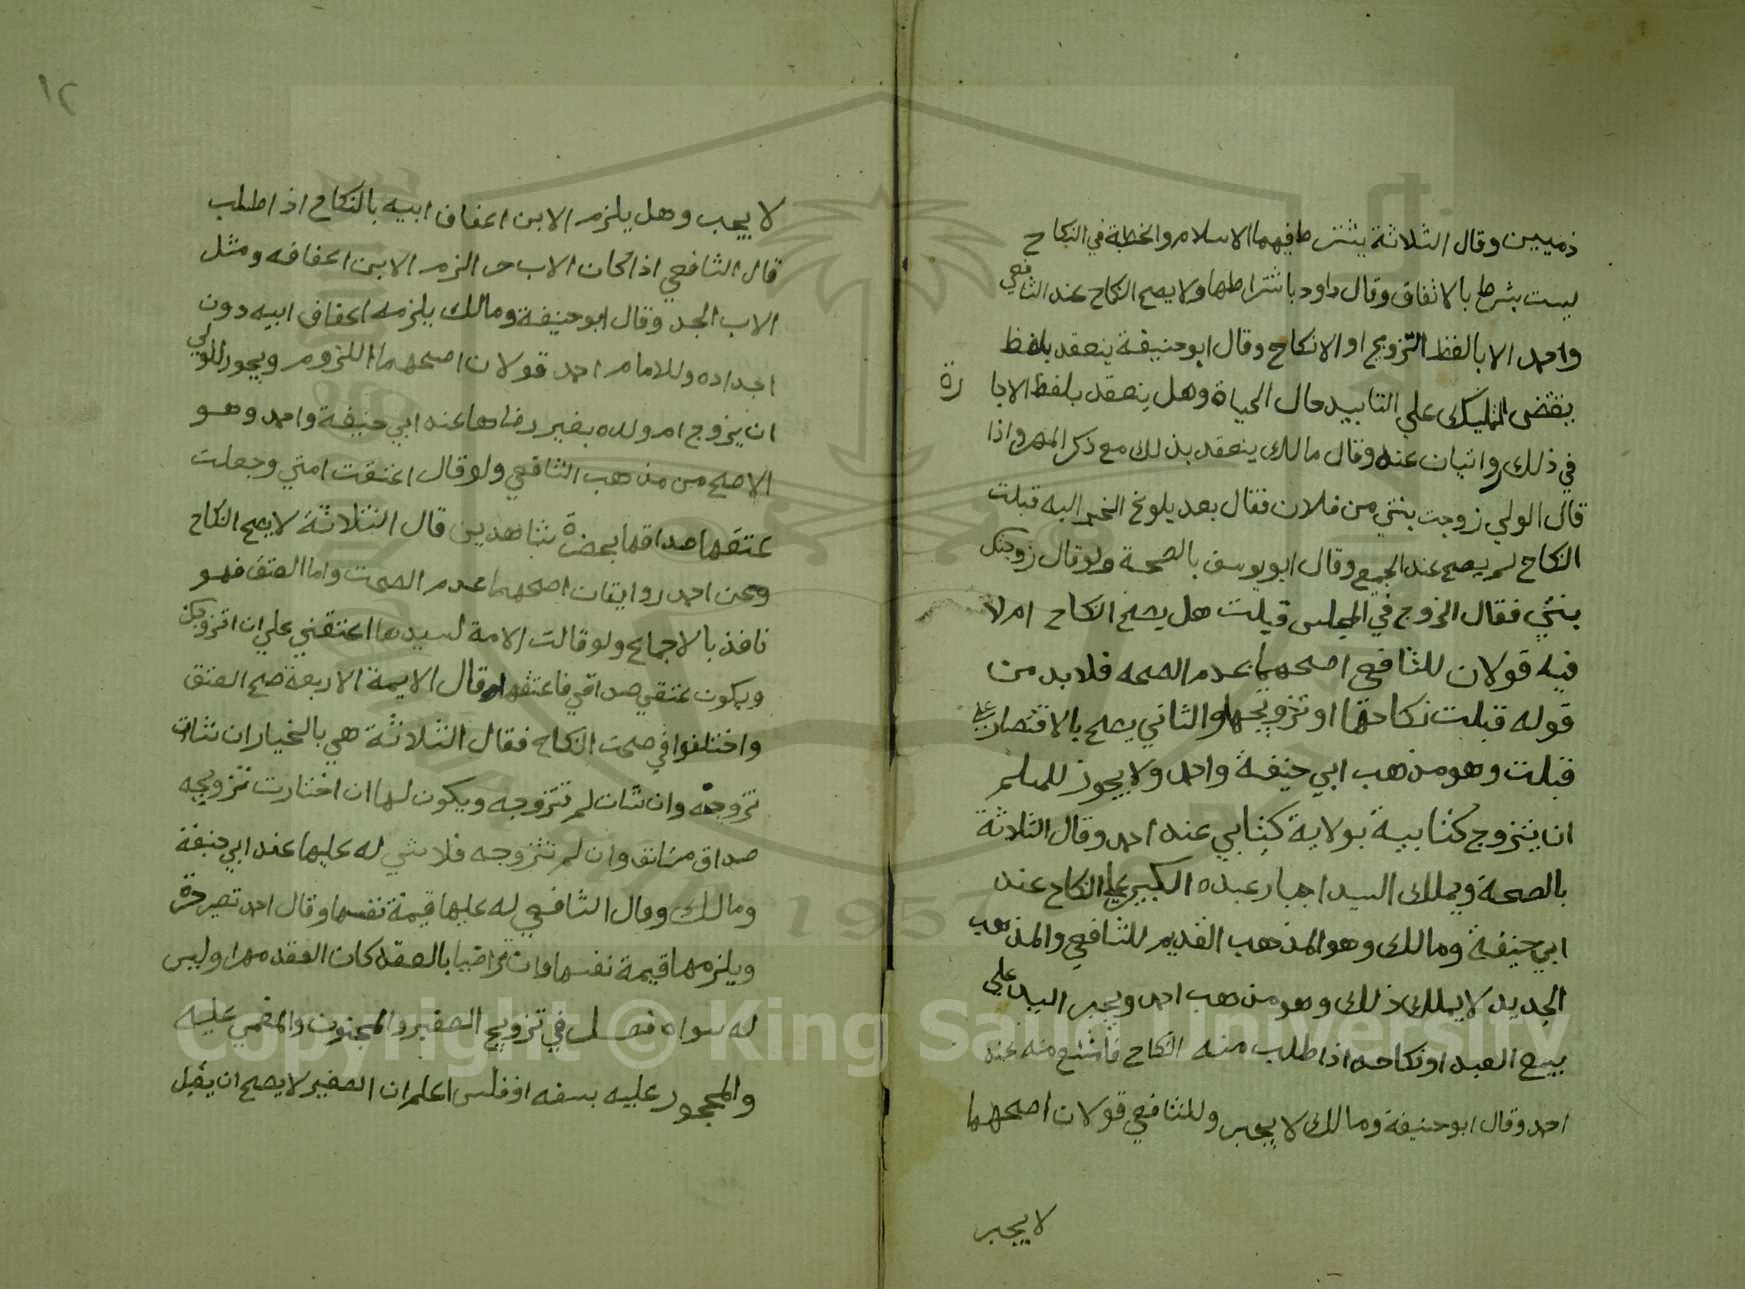 ذميين وقال الثلاثة يشترط فيهما الاسلام والخطبة في النكاح
ليست بشرط بالاتفاق وقال داود باشتراطها ولا يصح النكاح عند الشافعي
واحمد الا بالفظ التزويج او الانكاح وقال ابو حنيفة ينعقد بلفظ
يقتضى التمليك علي التابيد حال الحياة وهل ينعقد بلفظ الاجا رة
في ذلك روايتان عنه وقال مالك ينعقد بذلك مع ذكر المهر واذا
قال الولي زوجت بنتي من فلان فقال بعد بلوغ الخبر اليه قبلت
النكاح لم يصح عند الجميع وقال ابو يوسف بالصحة ولو قال زوجتك
بنتي فقال الزوج في المجلس قبلت هل يصح النكاح ام لا
فيه قولان للشافعي اصحهما عدم الصحه فلا بد من
قوله قبلت نكاحها او تزويجها والثاني يصح بالاقتصار علي
قبلت وهو مذهب ابي حنيفة واحمد ولا يجوز للمسلم
ان يتزوج كتابية بولاية كتابي عند احمد وقال الثلاثة
بالصحة ويملك السيد اجبار عبده الكبير علي النكاح عند
ابي حنيفة ومالك وهو المذهب القديم للشافعي والمذهب
الجديد لا يملك ذلك وهو مذهب احمد ويجبر السيد علي
بيع العبد او نكاحه اذا طلب منه النكاح فامتنع منه عند
احمد وقال ابو حنيفة ومالك لا يجبر وللشافعي قولان اصحهما
لا يجبر
١٢
لا يجب وهل يلزم الابن اعفاف ابيه بالنكاح اذا طلب
قال الشافعي اذا كان الاب حر الزم الابن اعفافه ومثل
الاب الجد وقال ابو حنيفة ومالك يلزمه اعفاف ابيه دون
اجداده وللامام احمد قولان اصحهما اللزوم ويجوز للولي
ان يزوج ام ولده بغير رضاها عند ابي حنيفة واحمد وهو
الاصح من مذهب الشافعي ولو قال اعتقت امتي وجعلت
عتقها صداقها بحضرة شاهدين قال الثلاثة لا يصح النكاح
وعن احمد روايتان اصحهما عدم الصحت واما العتق فهو
نافذ بالاجماع ولو قالت الامة لسيدها اعتقني علي ان اتزوجك
ويكون عتقي صداقي فاعتقها قال الايمة الاربعة صح العتق
واختلفوا في صحت النكاح فقال الثلاثة هي بالخيار ان شات
تزوجته وان شات لم تتزوجه ويكون لها ان اختارت تزويجه
صداق مستانف وان لم تتزوجه فلا شي له عليها عند ابي حنيفة
ومالك وقال الشافعي له عليها قيمة نفسها وقال احمد تصير حرة
ويلزمها قيمة نفسها وان تراضيا بالعقد كان العقد مهرا وليس
له سواه فصل في تزويج الصغير والمجنون والمغمي عليه
والمحجور عليه بسفه او فلس اعلم ان الصغير لا يصح ان يقبل
Copyright © King Saud University
1957